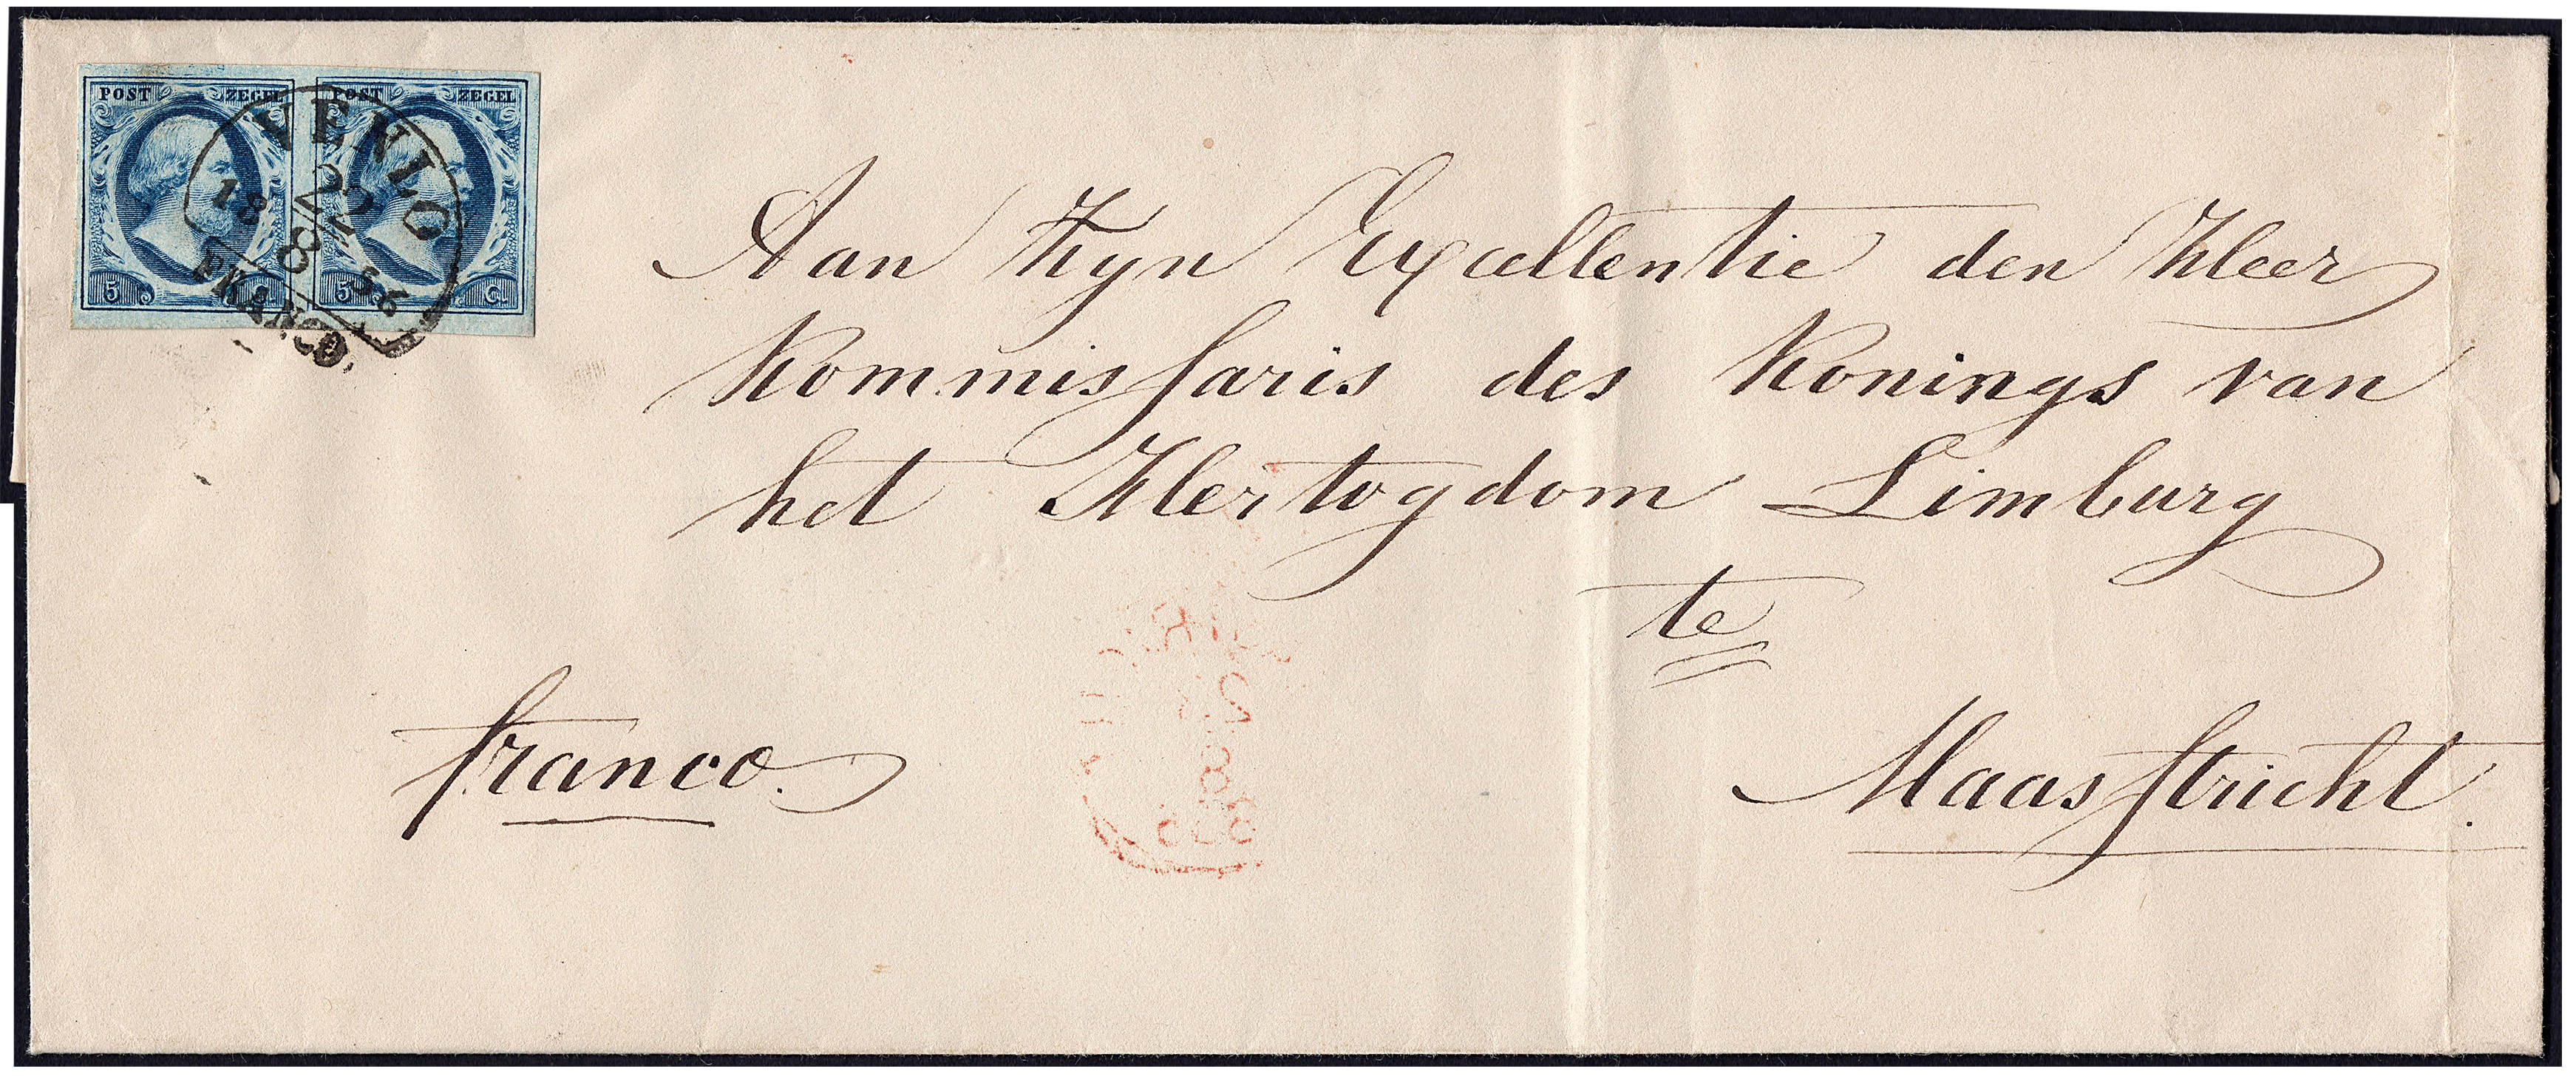 POST ZEGEL POST ZEGEL
VENLO
22
18 8 56
FRANCO.
5 Ct 5 Ct
Aan Zyn Excellentie den Heer
Kommissaris des Konings van
het Hertogdom Limburg
te
franco.
Maastricht.